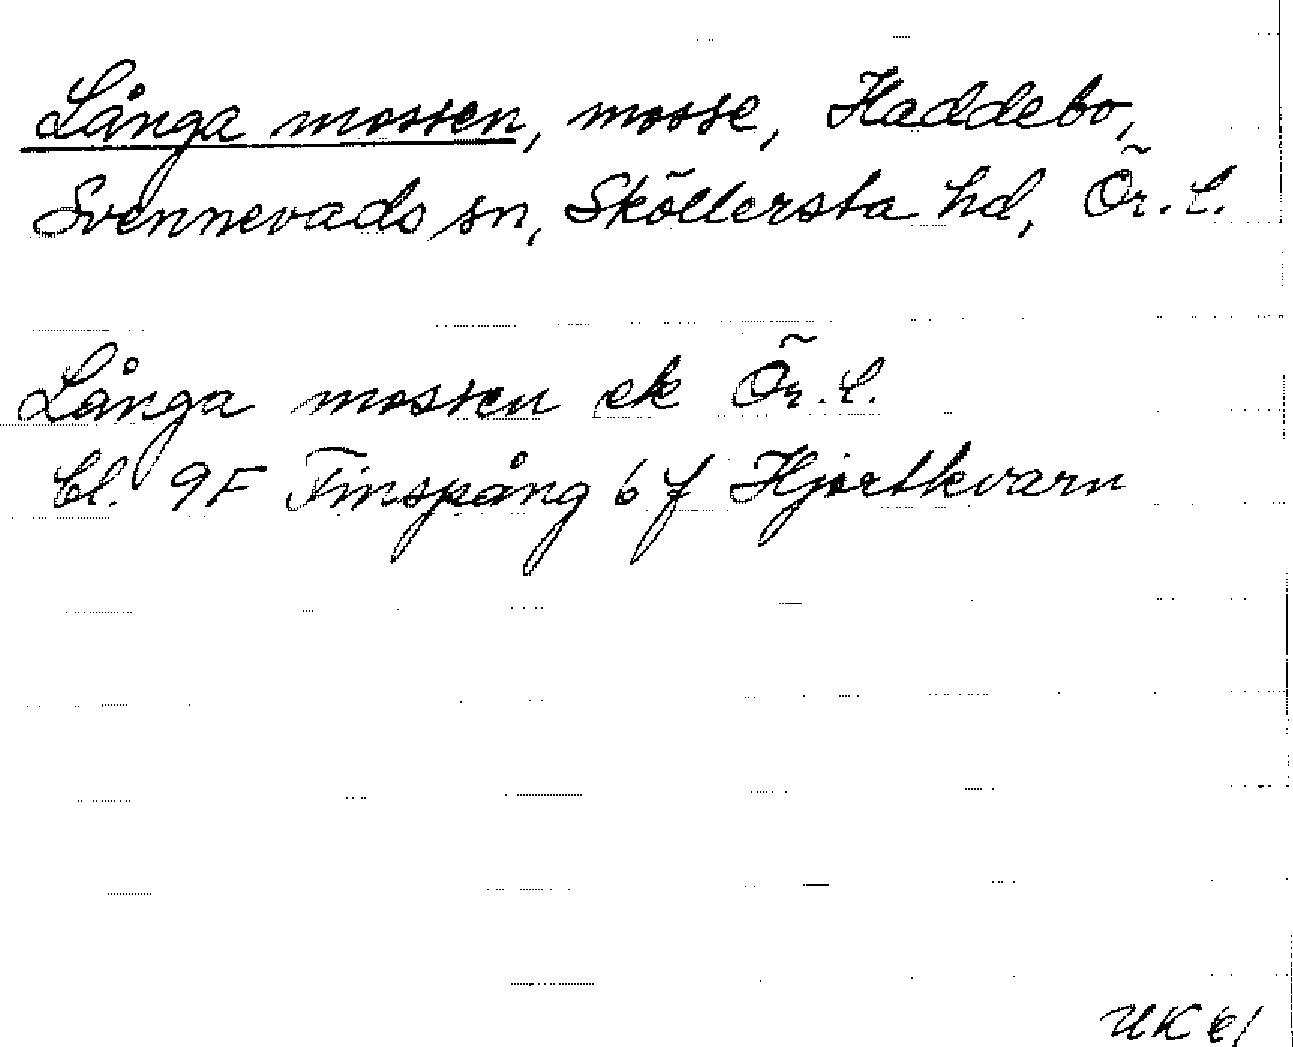 Långa mossen, mosse, Haddebo,
Svennevads sn, Sköllersta hd, Ör. l.
Långa mossen ek Ör. l.
bl. 9F Finspång 6 f Hjortkvarn